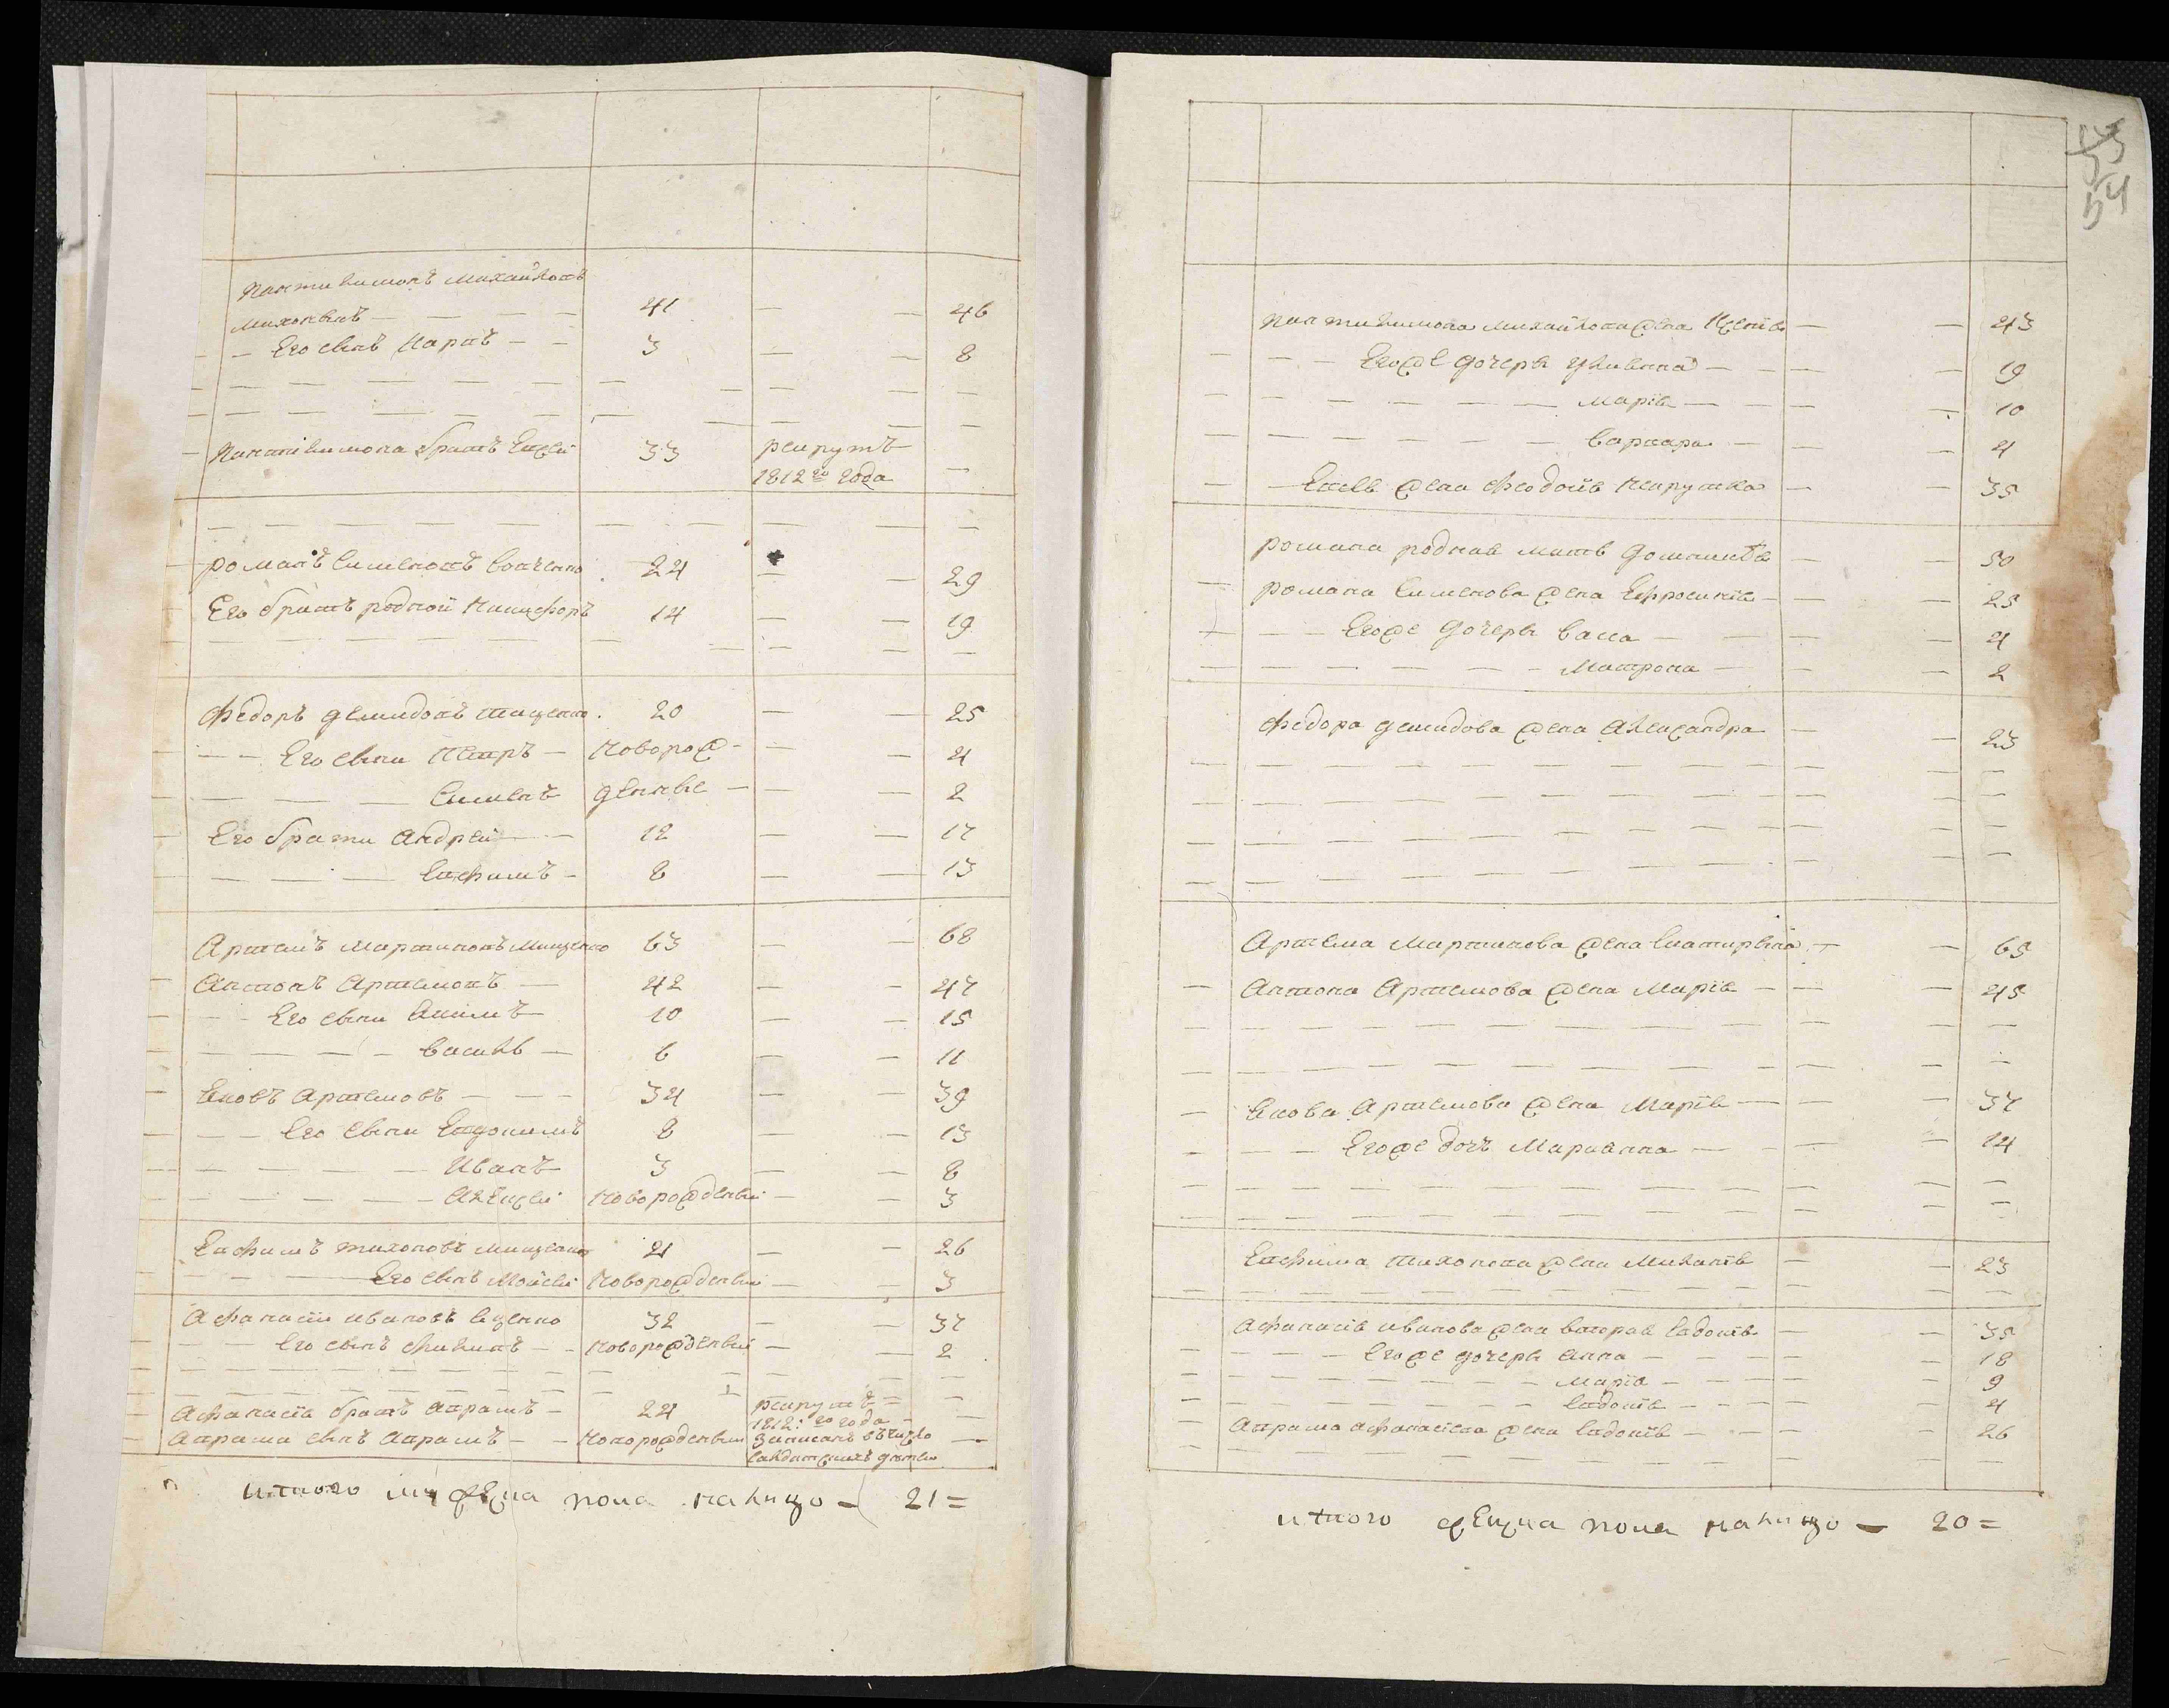 Пантилимонъ Михайловъ
41 — — 46
— Его сынъ Карпъ — — 3 — — 8
Пантилимона братъ Евсей 33 рекрутъ
1812го года —
Романъ Сименовъ 24 — — 29
Его братъ родной Никифоръ 14 — — 19
Федоръ Демидовъ Тищенко 20 — — 25
— — Его сыни Петръ — новорож- — — 4
— — — Сименъ денные — — — 2
Его брати Андрей — — 12 — — 17
— — — Евфимъ — 8 — — 13
Артемъ Мартиновъ Мищенко 63 — — 68
Антонъ Артемовъ — 42 — — 47
— — Его сыни Акимъ 10 — — 15
— — — — Василь — 6 — — 11
Яковъ Артемовъ — — — 34 — — 39
— — Его сыни Евдокимъ 8 — — 13
— — — — — Иванъ 3 — — 8
— — — — — Алексей новорожденный — — 3
Евфимъ Тихоновъ Мищенко 21 — — 26
— — — Его сынъ Мойсей новорожденный — — 3
Афанасий Ивановъ 32 — — 37
— — Его сынъ Филипъ — — новорожденный — — 2
Афанасія братъ Аврамъ — 24 рекрутъ
1812: го года —
Аврама сынъ Аврамъ — — новорожденный записанъ въ число —
солдатскихъ детей
итого мужеска пола налицо — 21 =
54
Пантилимона Михайлова жена — — 43
— — — Его же дочеры Улияна — — — 19
— — — — — — Марія — — — — 10
— — — — — — Варвара — — — 4
— — Евсея жена Феодосія — — 35
Романа родная мать — — 50
Романа Сименова жена Ефросинія — — — 25
— — — Его же дочеры Васа — — — 4
— — — — — — — Матрона — — — 2
Федора Демидова жена Александра — — 23
Артема Мартинова жена — — 65
Антона Артемова жена Марія — — — 45
Якова Артемова жена Марія — — — 37
— — — Его же дочь Марианна — — — 14
Евфима Тихонова жена Миланія — — 23
Афанасія Иванова жена вторая Евдокія — — 35
— — — Его же дочеры Анна — — — 18
— — — — — — — Марія — — — — 9
— — — — — — — Евдокія — — — 4
Аврама Афанасієва жена Евдокія — — — 26
итого женска пола налицо — 20 =